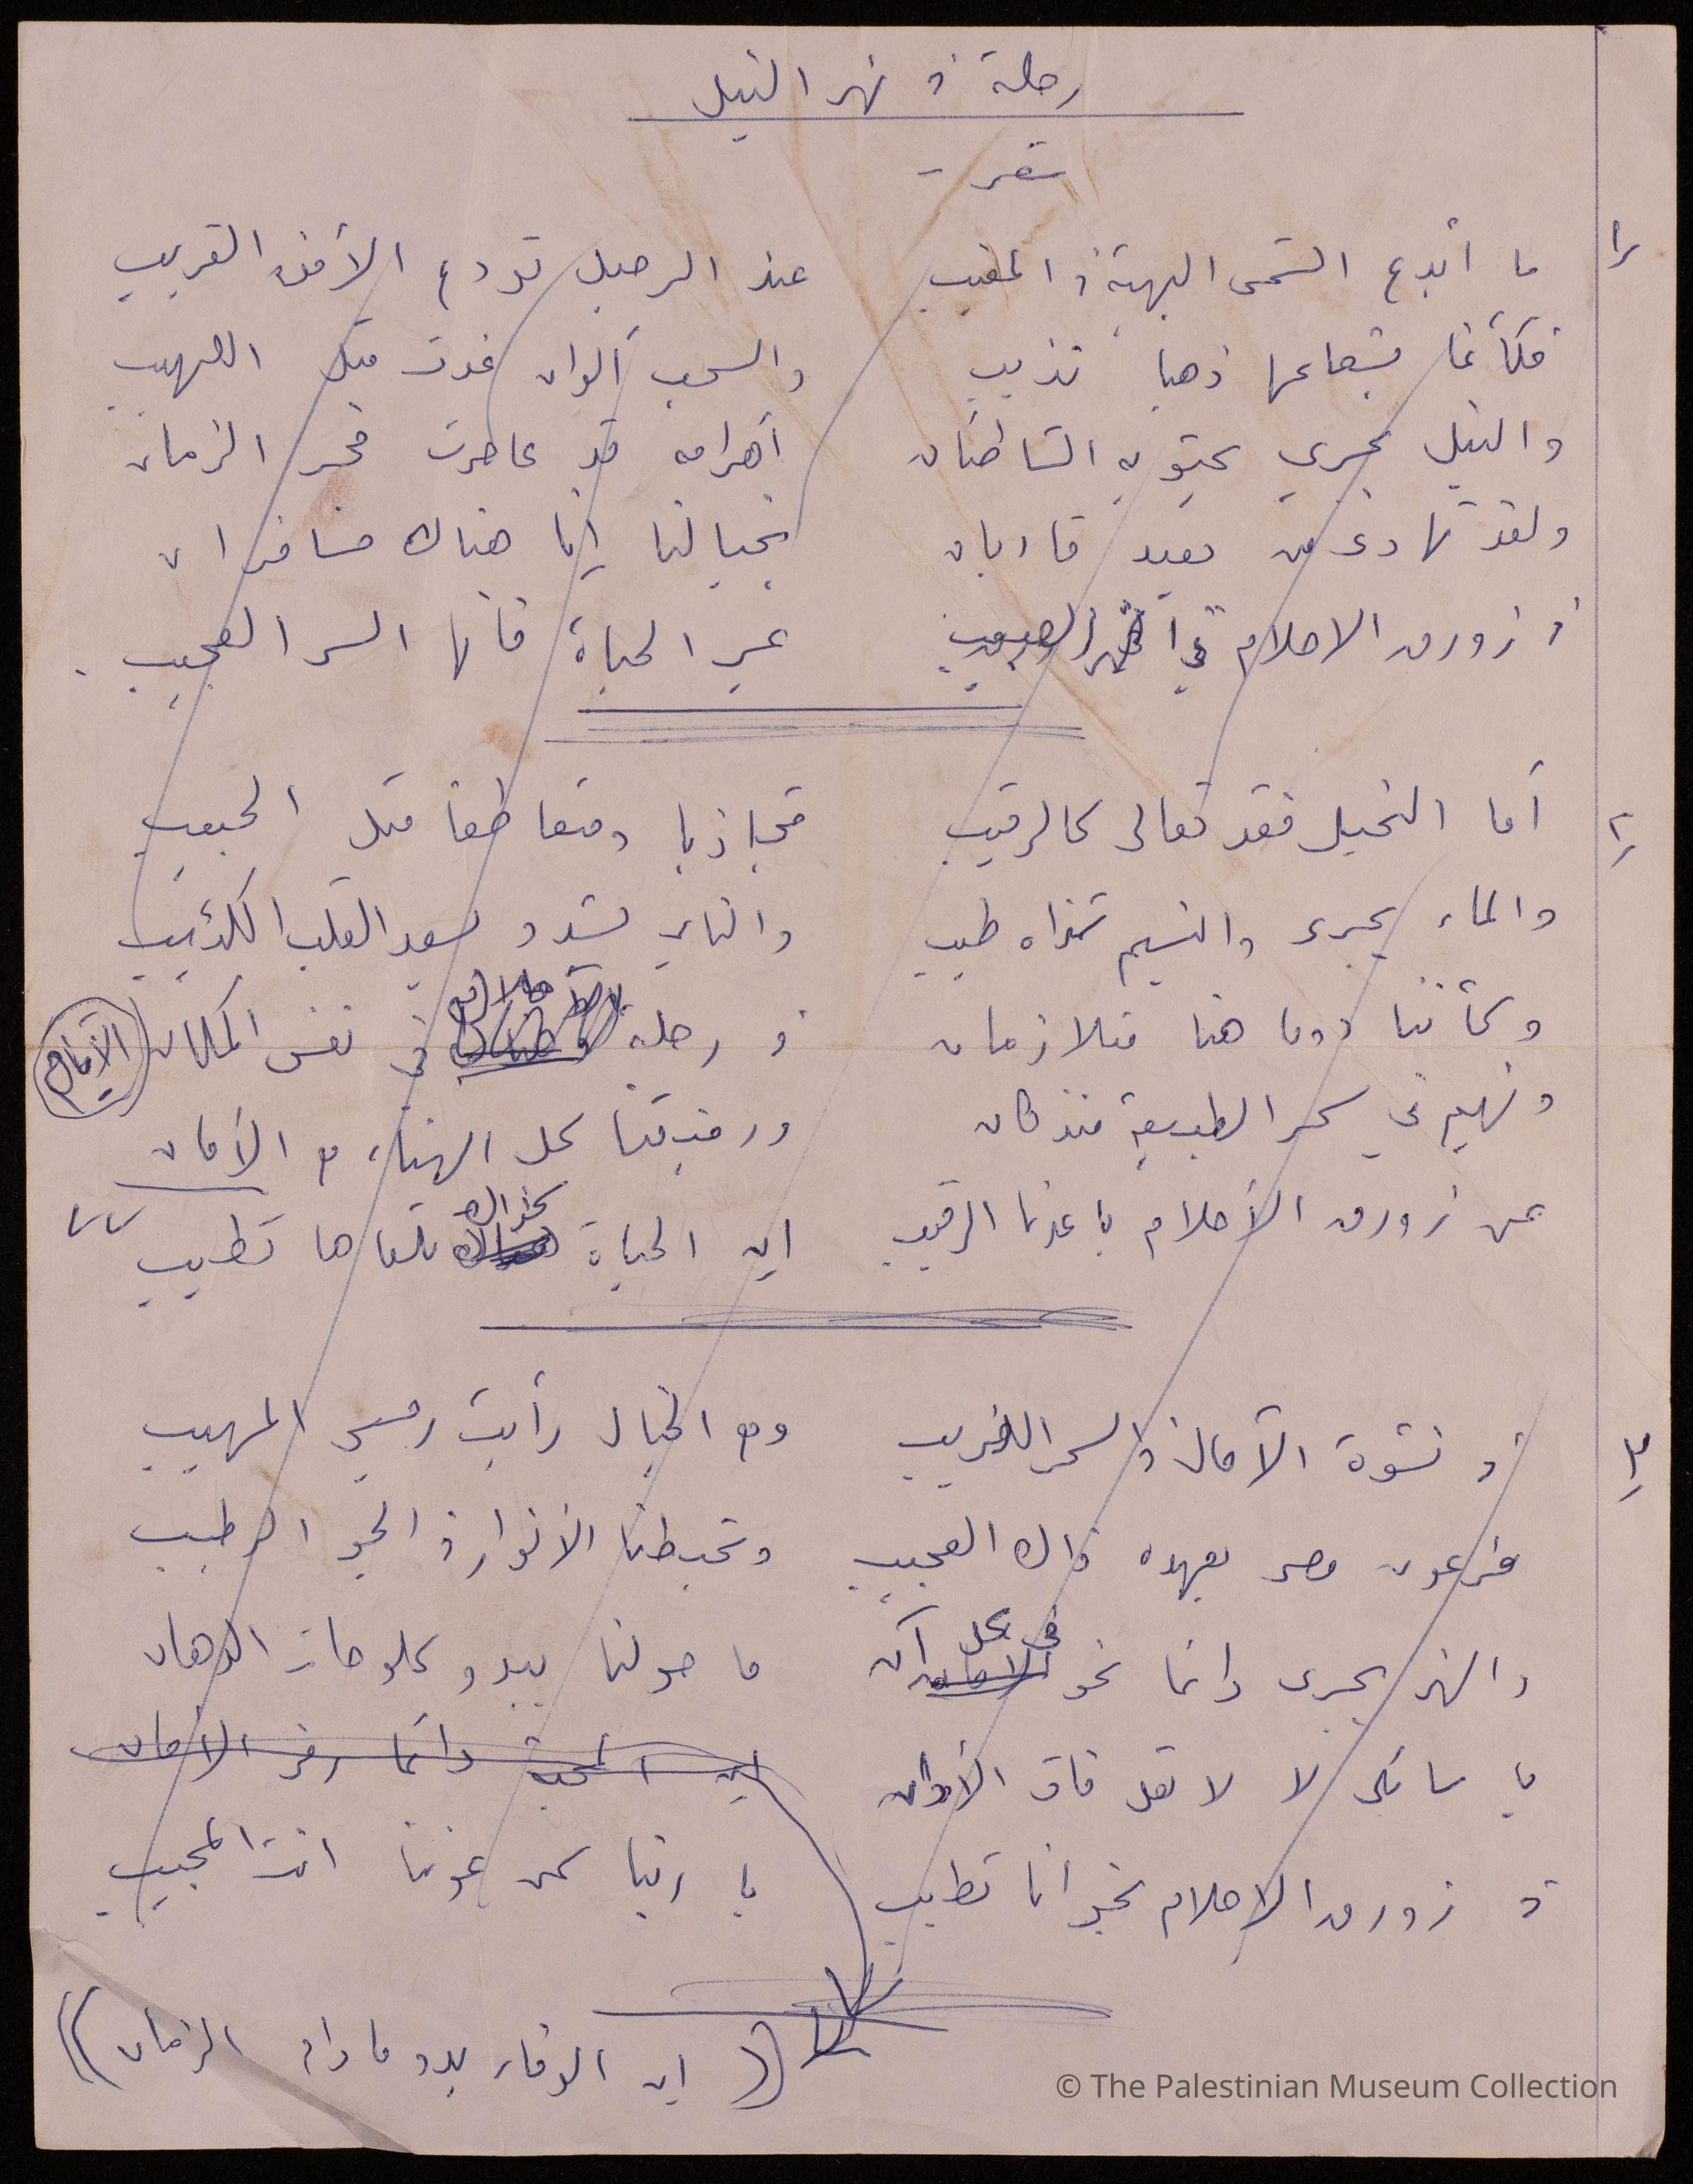 رحلة في نهر النيل
شعر -
١ ما أبدع الشمس البهية في المغيب عند الرحيل تودع الأفق القريب
فكأنما بشعاعها ذهبا تذيب والسحب ألوان غدت مثل اللهيب
والنيل يجري يحتويه الشاطئان أهرامه قد عاصرت فجر الزمان
ولقد تهادى من بعيد قاربان بخيالنا إنا هناك مسافران
في زورق الاحلام في عبر الحياة فانها السر العجيب .
٢ أما النخيل فقد تعالى كالرقيب متجاذبا ومتعاطفا مثل الحبيب
والماء يجري والنسيم شذاه طيب والناي يشدو يسعد القلب الكئيب
وكأننا دوما هنا متلازمان في رحلة في نفس المكان
ونهيم في سحر الطبيعة منذ كان ورفيقنا كل الهناء مع الأمان
عن زورق الأحلام باعدنا الرقيب ان الحياة كذاك تلقاها تطيب
٣ في نشوة الآمال والسحر الغريب ومع الخيال رأيت رمسيس المهيب
فرعون مصر بعهده ذاك العجيب وتحيطنا الأنوار في الجو الرطيب
والنهر يجري دائما نحو في كل آن ما حولنا يبدو كلوحات الدهان
يا سائلي لا لا تقل فات الأوان ان المحبة دائما رمز الأمان
في زورق الاحلام نجوانا تطيب يا ربنا كن عوننا انت المجيب
(( ان الوفاء يدوم ما دام الزمان ))
© The Palestinian Museum Collection